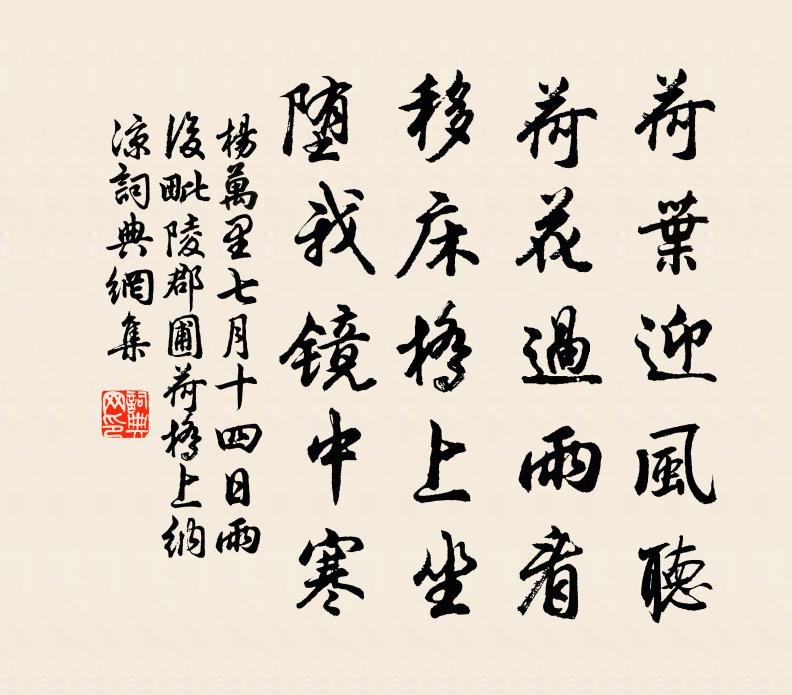 荷葉迎風聽
荷花過雨看
移床橋上坐
堕我鏡中寒
楊萬里七月十四日雨
後毗陵郡圃荷橋上納
凉詞典網集
詞典网印